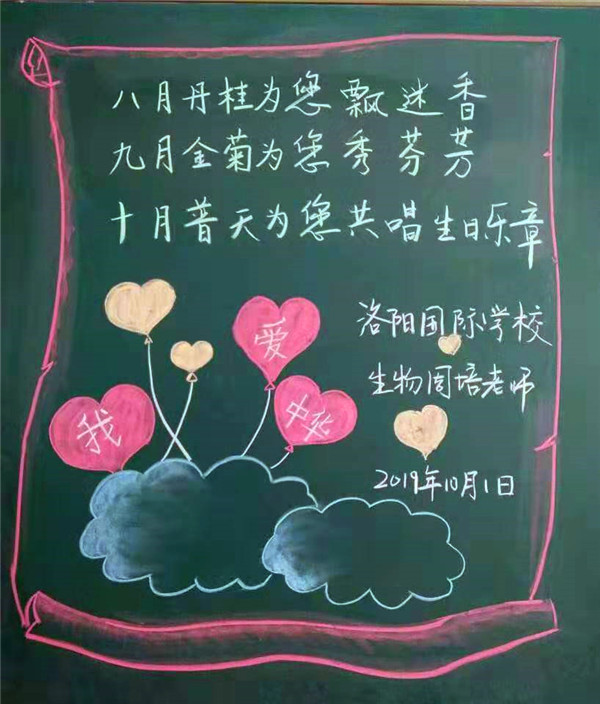 八月丹桂为您飘迷香
九月金菊为您秀芬芳
十月普天为您共唱生日乐章
我
爱
中华
洛阳国际学校
生物周培老师
2019年10月1日